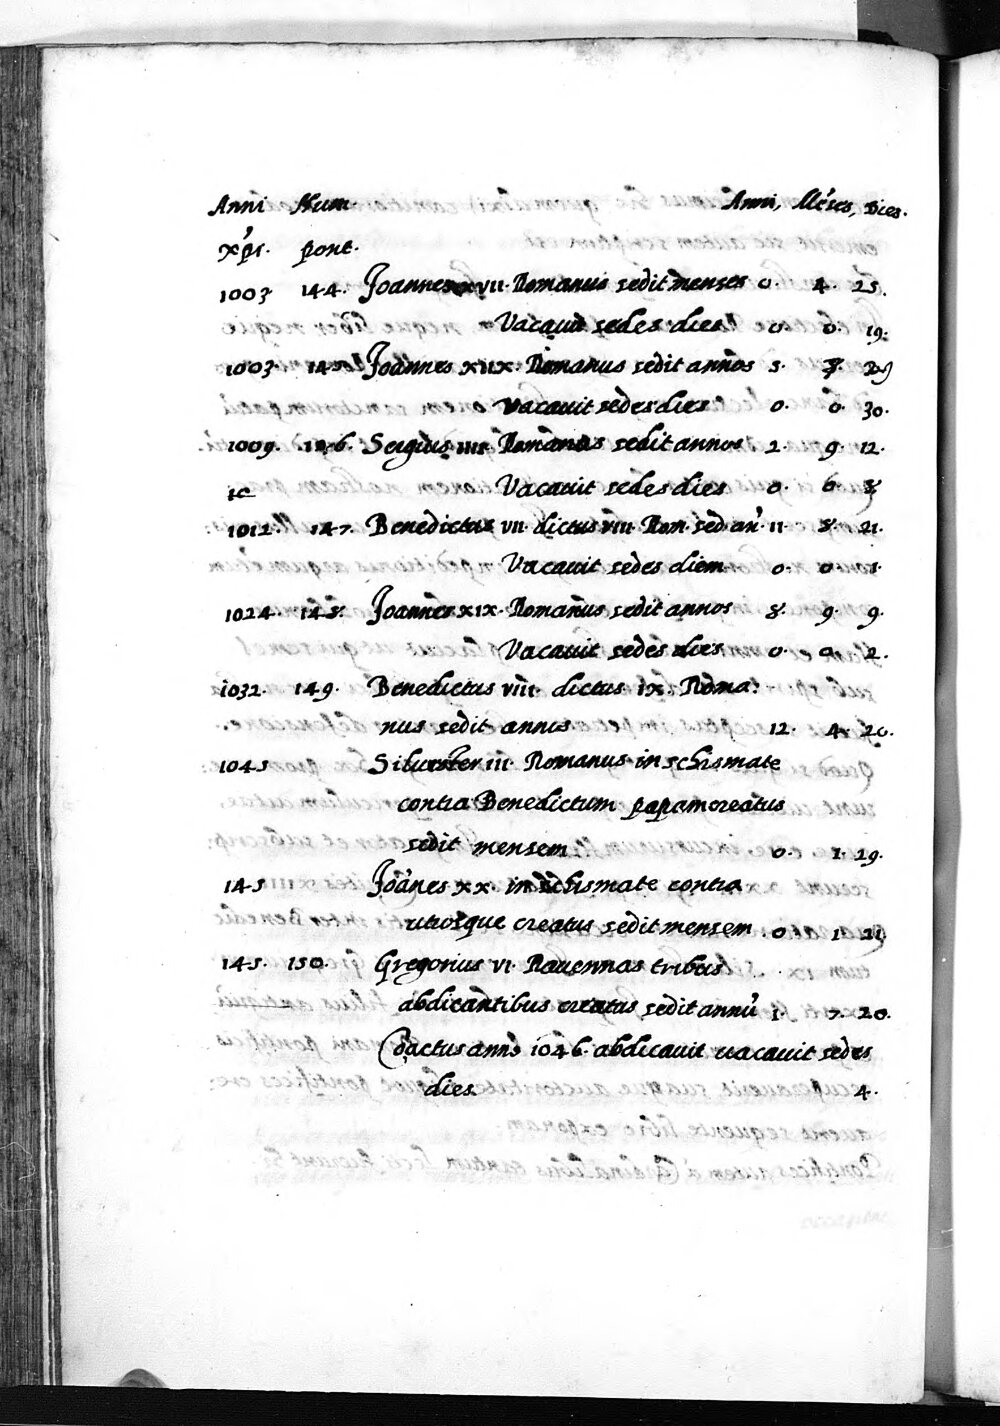 Anni Num. Anni, Mēses, Dies.
xp̄i. pont.
1003 144. Joannes xvii. Romanus sedit menses 0. 4. 25.
Vacauit sedes dies 0. 0. 19.
1003. 145. Joannes xiix. Romanus sedit annos 5. 7. 29
Vacauit sedes dies 0. 0. 30.
1009. 146. Sergius iiii. Romanus sedit annos 2. 9. 12.
10 Vacauit sedes dies 0. 0 8
1012. 147. Benedictus vii. dictus viii. Rom. sed. an̄. 11. 8. 21.
Vacauit sedes diem 0. 0. 1.
1024. 148. Joannes xix. Romanus sedit annos 8. 9. 9.
Vacauit sedes dies 0. 0. 2.
1032. 149. Benedictus viii. dictus ix. Roma:
nus sedit annos 12. 4. 20.
1045 Siluester iii. Romanus in schismate
contra Benedictum papam creatus
sedit mensem 0. 1. 29.
145 Joānes xx. in schismate contra
utrosque creatus sedit mensem 0. 1. 21
145. 150. Gregorius vi. Rauennas tribus
abdicantibus creatus sedit annū 1. 7. 20.
Coactus anno 1046. abdicauit uacauit sedes
dies 4.